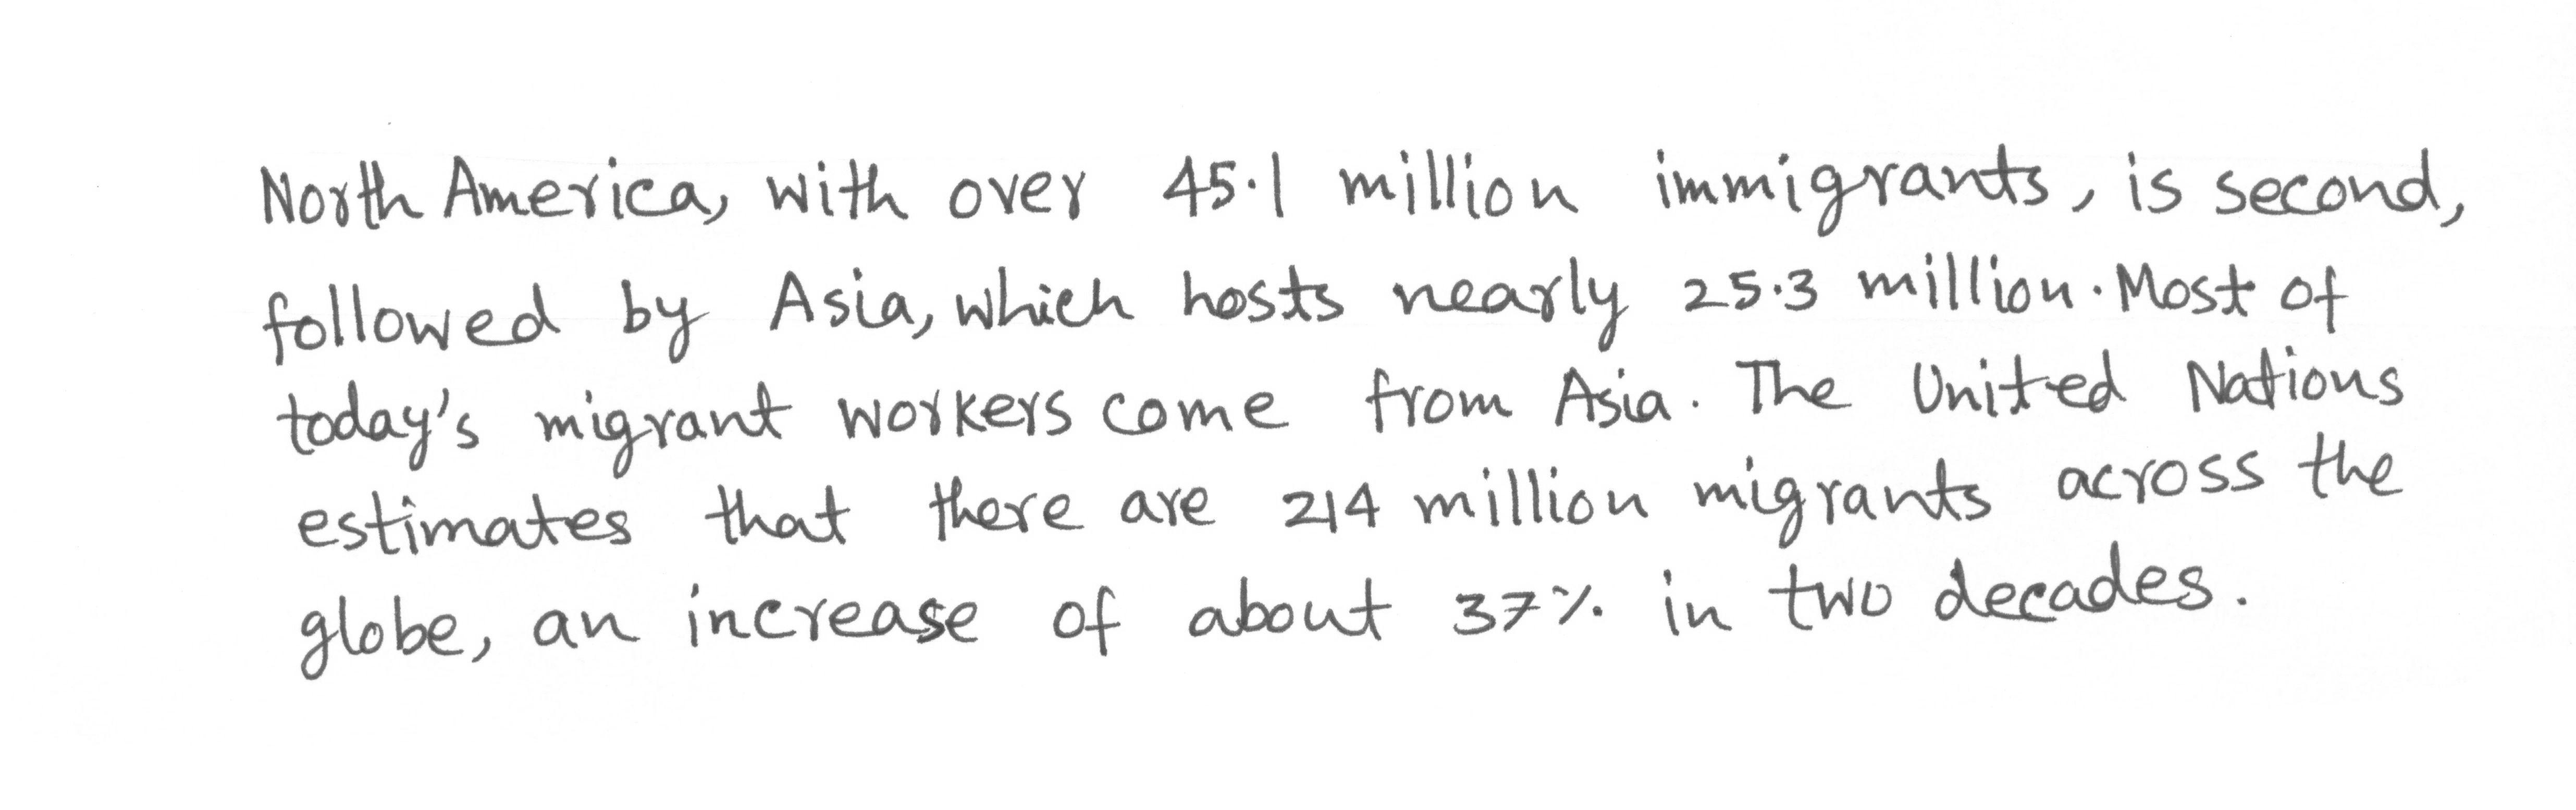 North America, with over 45.1 million immigrants, is second,
followed by Asia, which hosts nearly 25.3 million. Most of
today's migrant workers come from Asia. The United Nations
estimates that there are 214 million migrants across the
globe, an increase of about 37% in two decades.